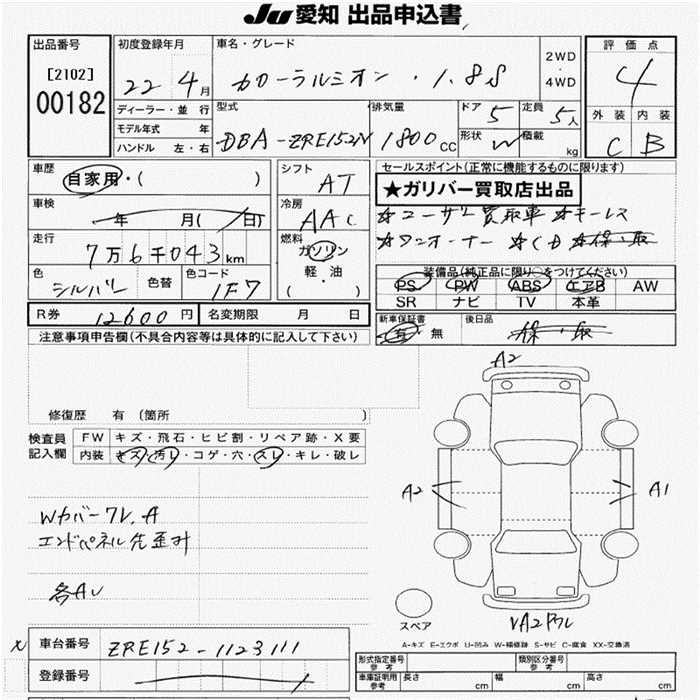 JU 愛知 出品申込書
出品番号
[2102]
00182
初度登録年月
22 4 月
車名・グレード
カローラルミオン ・ 1.8S
2WD
・
4WD
評価点
4
外装 内装
C B
ディーラー・並行
モデル年式 年
ハンドル 左・右
型式
DBA-ZRE152N
排気量
1800 cc
ドア 5
定員 5人
形状 W
積載 kg
車歴
自家用・( )
車検
年 月( 日)
走行
7万6千043km
色
シルバー
色替
色コード
1F7
シフト
AT
冷房
AAC
燃料
ガソリン
軽・油
( )
セールスポイント(正常に機能するものに限ります)
★ガリバー買取店出品
☆ユーザー買取車 ☆キーレス
☆ワンオーナー ☆CD ☆保・取
装備品(純正品に限り○をつけてください)
PS PW ABS エアB AW
SR ナビ TV 本革
R券 12600 円
名変期限 月 日
新車保証書
有 ・ 無
後日品
保・取
注意事項申告欄(不具合内容等は具体的に記入して下さい)
修復歴 有 (箇所 )
検査員
記入欄
FW キズ・飛石・ヒビ割・リペア跡・X要
内装 キズ・汚レ・コゲ・穴・スレ・キレ・破レ
Wカバーワレ、A
エンドパネル先歪み
各AU
A2
A2
A1
VA2ワレ
スペア
A-キズ E-エクボ U-凹み W-補修跡 S-サビ C-腐食 XX-交換済
車台番号 ZRE152-1123111
登録番号
形式指定番号
参考
類別区分番号
参考
車庫証明用
参考
長さ cm
幅 cm
高さ cm